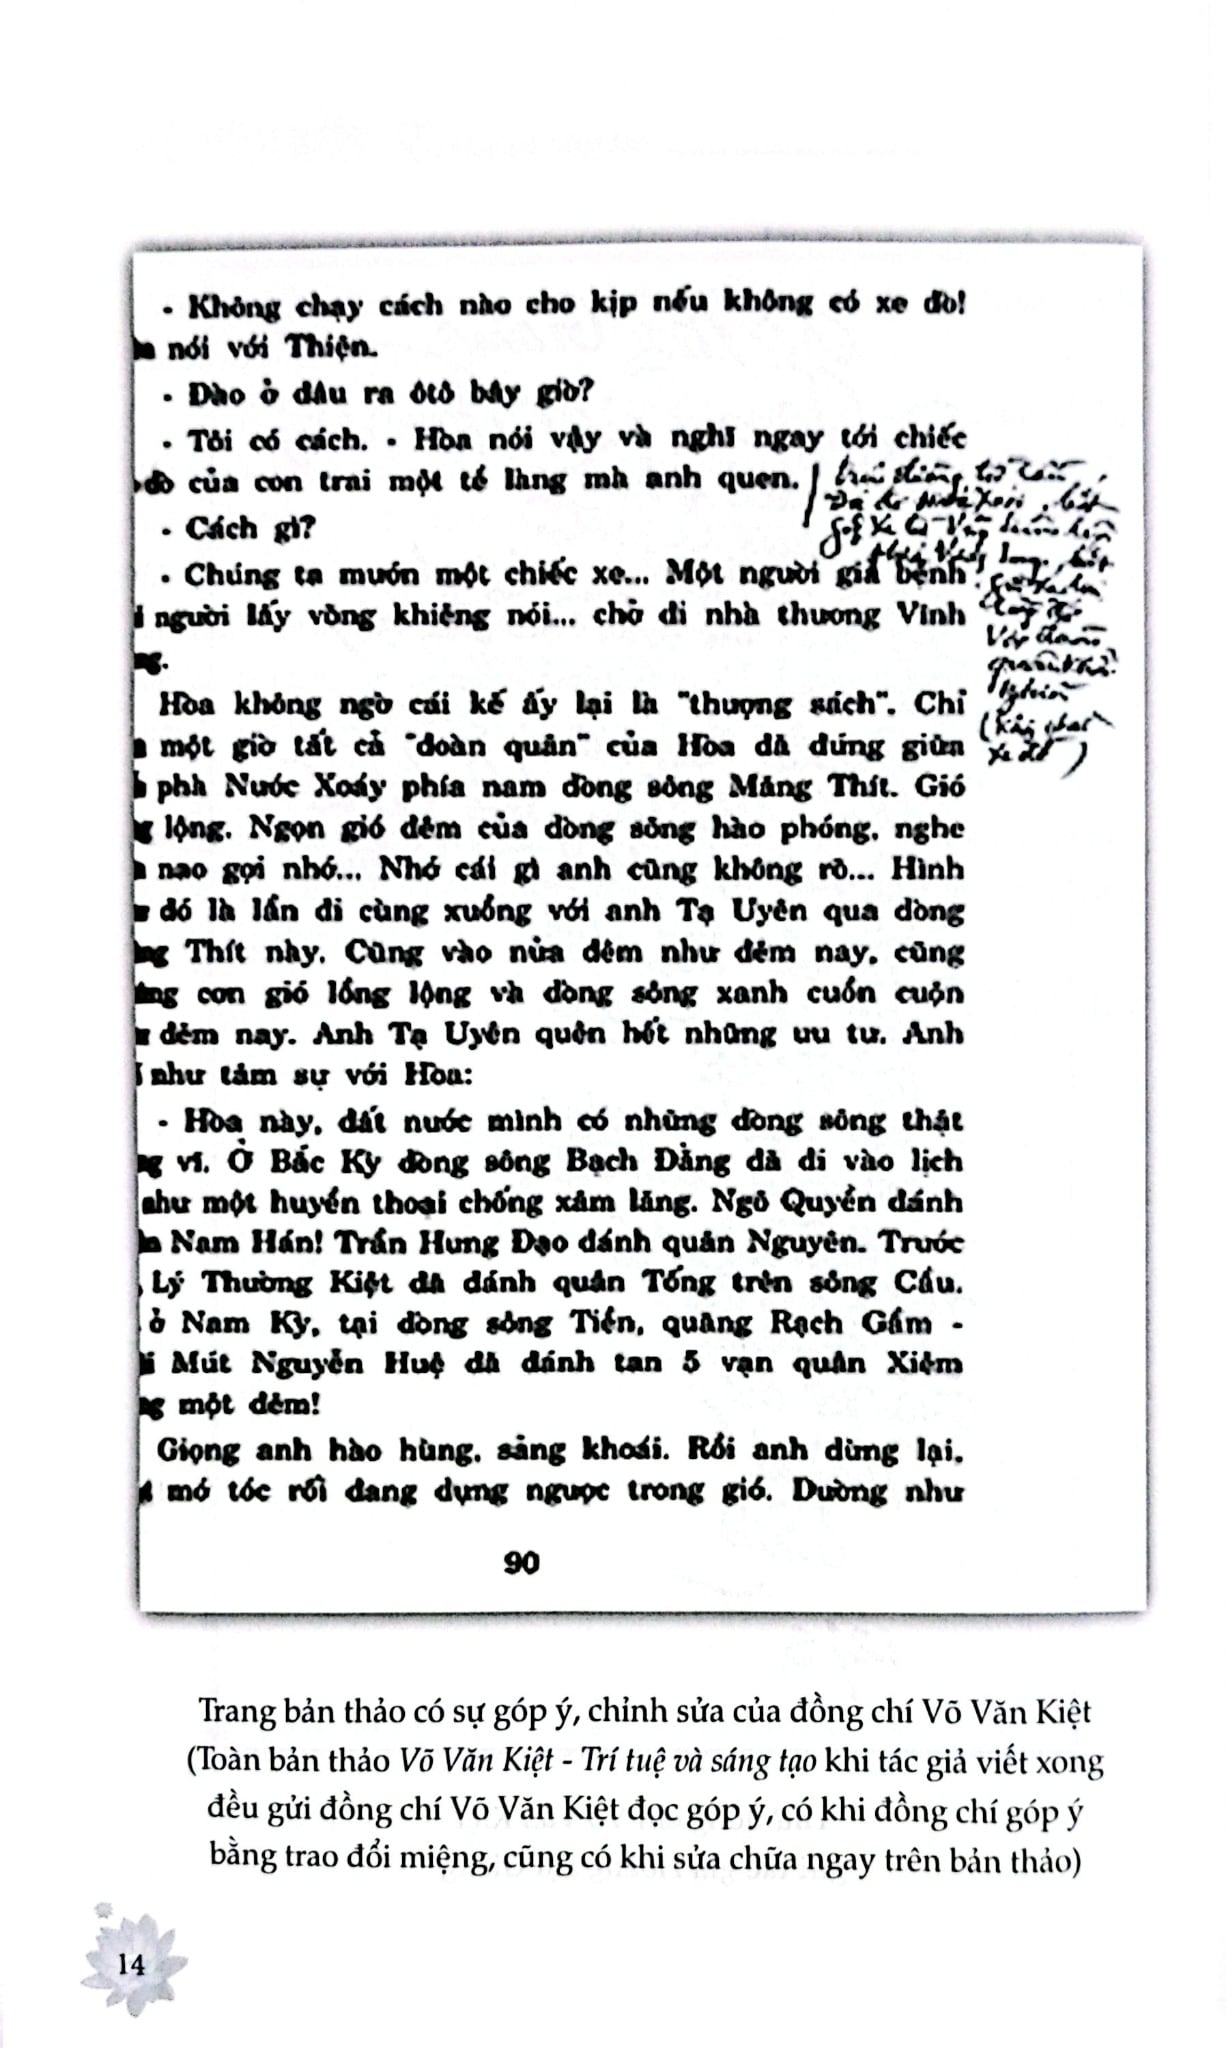 - Không chạy cách nào cho kịp nếu không có xe đò!
nói với Thiện.
- Đào ở đâu ra ôtô bây giờ?
- Tôi có cách. - Hòa nói vậy và nghĩ ngay tới chiếc
đò của con trai một tề làng mà anh quen.
- Cách gì?
- Chúng ta muốn một chiếc xe... Một người giả bệnh
người lấy võng khiêng nói... chở đi nhà thương Vĩnh
Hòa không ngờ cái kế ấy lại là "thượng sách". Chỉ
một giờ tất cả "đoàn quân" của Hòa đã đứng giữa
phà Nước Xoáy phía nam dòng sông Măng Thít. Gió
lộng. Ngọn gió đêm của dòng sông hào phóng, nghe
nao gọi nhớ... Nhớ cái gì anh cũng không rõ... Hình
đó là lần đi cùng xuồng với anh Tạ Uyên qua dòng
Thít này. Cũng vào nửa đêm như đêm nay, cũng
con gió lồng lộng và dòng sông xanh cuồn cuộn
đêm nay. Anh Tạ Uyên quên hết những ưu tư. Anh
như tâm sự với Hòa:
- Hòa này, đất nước mình có những dòng sông thật
vĩ. Ở Bắc Kỳ dòng sông Bạch Đằng đã đi vào lịch
như một huyền thoại chống xâm lăng. Ngô Quyền đánh
Nam Hán! Trần Hưng Đạo đánh quân Nguyên. Trước
Lý Thường Kiệt đã đánh quân Tống trên sông Cầu.
ở Nam Kỳ, tại dòng sông Tiền, quãng Rạch Gầm -
Mút Nguyễn Huệ đã đánh tan 5 vạn quân Xiêm
một đêm!
Giọng anh hào hùng, sảng khoái. Rồi anh dừng lại,
mớ tóc rối đang dựng ngược trong gió. Dường như
90
Trang bản thảo có sự góp ý, chỉnh sửa của đồng chí Võ Văn Kiệt
(Toàn bản thảo Võ Văn Kiệt - Trí tuệ và sáng tạo khi tác giả viết xong
đều gửi đồng chí Võ Văn Kiệt đọc góp ý, có khi đồng chí góp ý
bằng trao đổi miệng, cũng có khi sửa chữa ngay trên bản thảo)
14